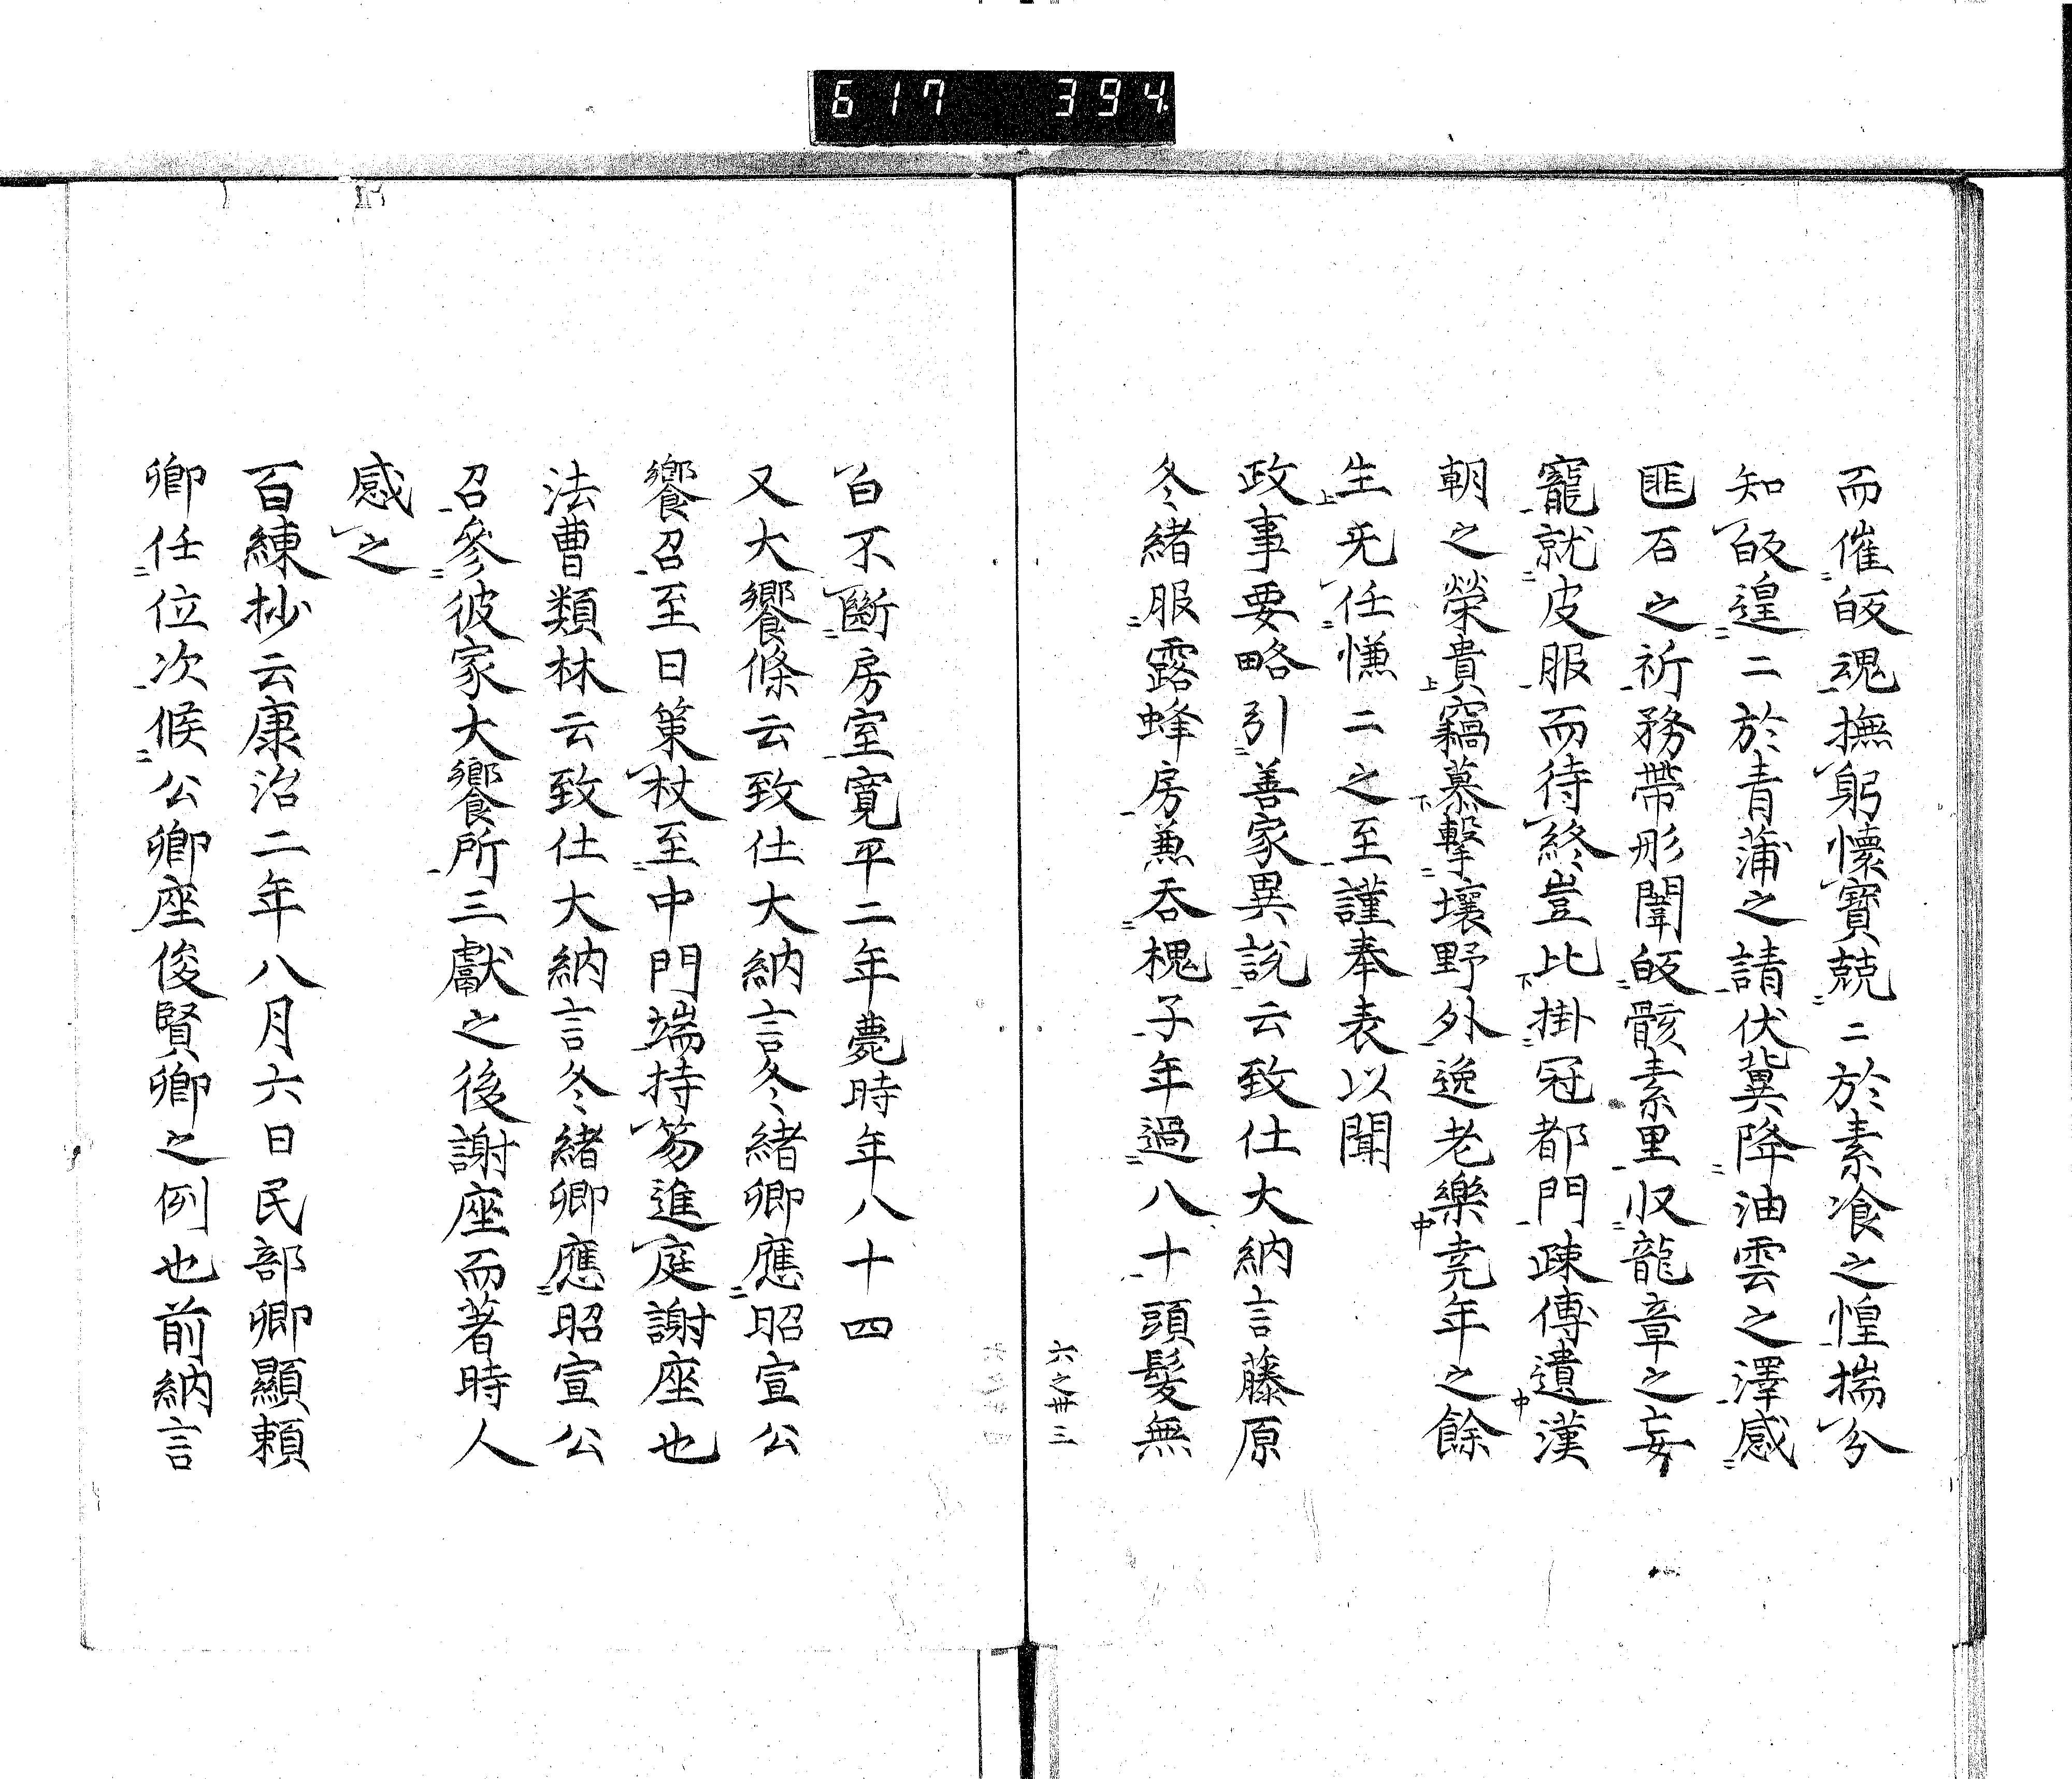 617 394
而催皈魂撫躬懷寶兢二於素飡之惶揣分
知皈遑二於青蒲之請伏冀降油雲之澤感
匪石之祈務帶彤闈皈骸素里収龍章之妄
寵就皮服而待終豈比掛冠都門疎傅遺漢
朝之榮貴竊慕擊壤野外逸老樂堯年之餘
生旡任慊二之至謹奉表以聞
政事要略引善家異説云致仕大納言藤原
冬緒服露蜂房兼呑槐子年過八十頭髮無
六之卅三
白不斷房室寛平二年薨時年八十四
又大饗條云致仕大納言冬緒卿應昭宣公
饗召至日策杖至中門端持笏進庭謝座也
法曹類林云致仕大納言冬緒卿應昭宣公
召參彼家大饗所三獻之後謝座而著時人
感之
百練抄云康治二年八月六日民部卿顯頼
卿任位次候公卿座俊賢卿之例也前納言